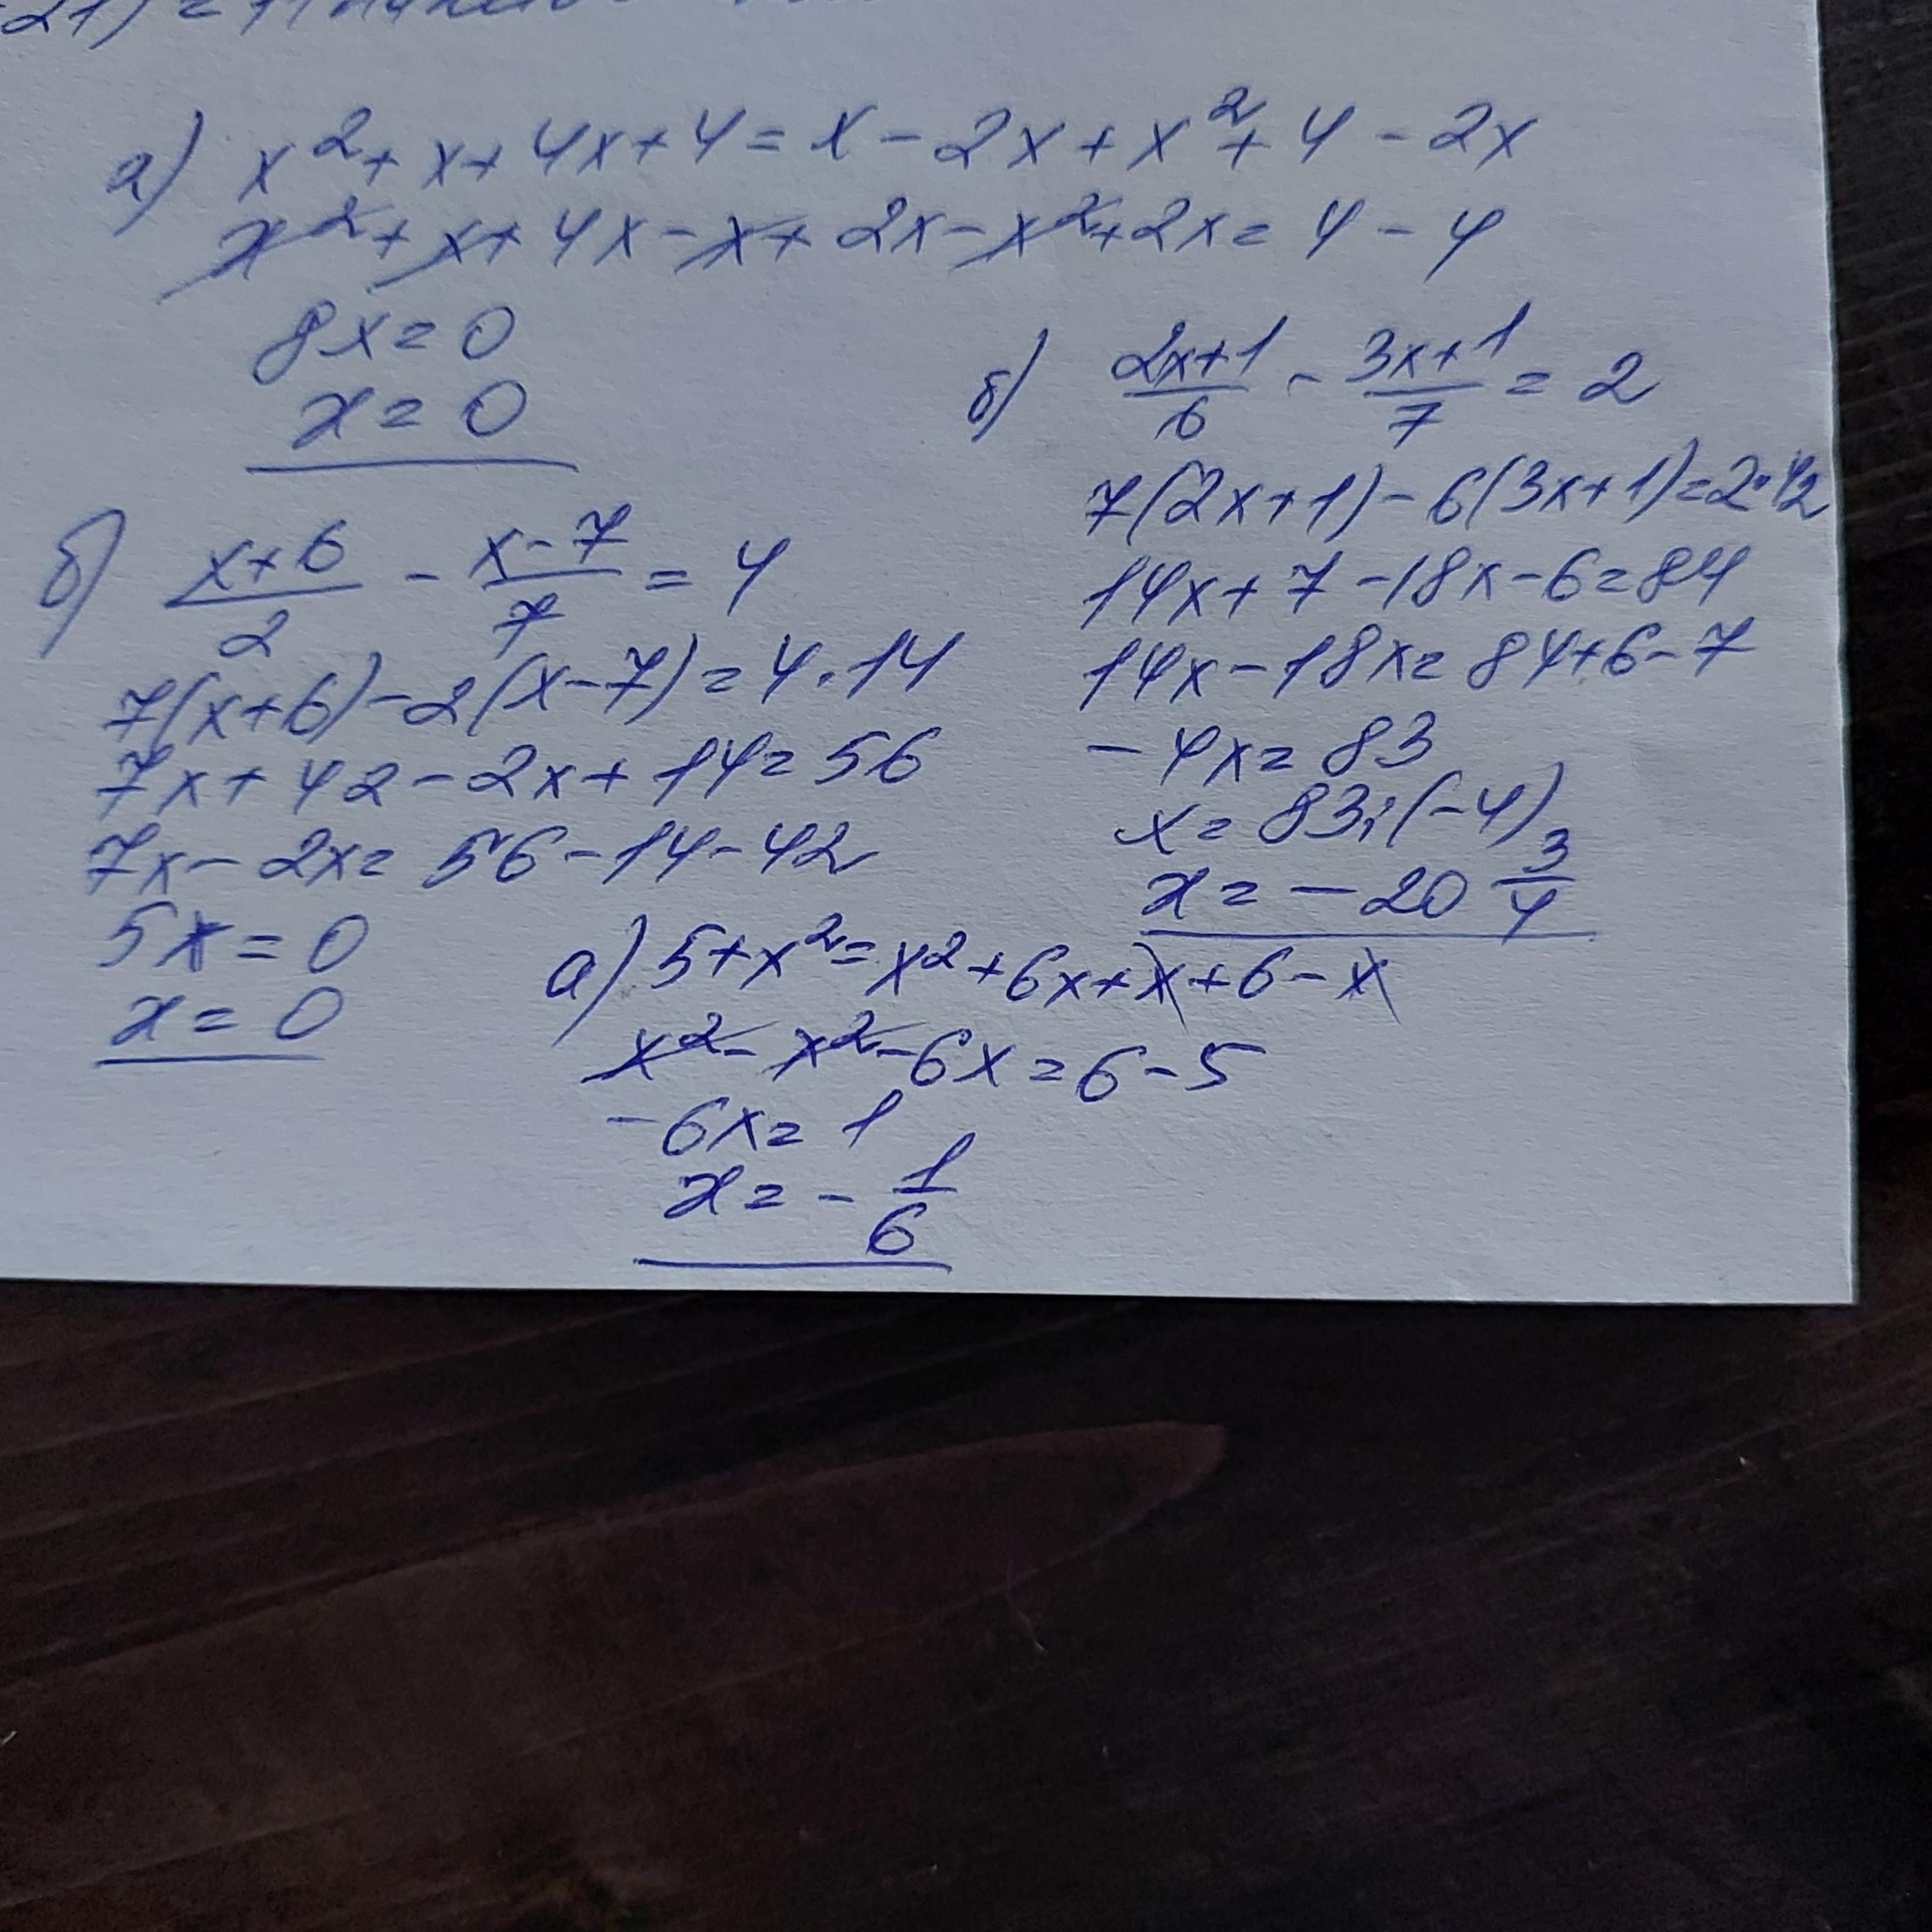 21) =
а) x² + x + 4x + 4 = x - 2x + x² + 4 - 2x
x² + x + 4x - x + 2x - x² + 2x = 4 - 4
8x = 0
x = 0
б) (x+6)/2 - (x-7)/7 = 4
7(x+6) - 2(x-7) = 4·14
7x + 42 - 2x + 14 = 56
7x - 2x = 56 - 14 - 42
5x = 0
x = 0
б) (2x+1)/6 - (3x+1)/7 = 2
7(2x+1) - 6(3x+1) = 2·42
14x + 7 - 18x - 6 = 84
14x - 18x = 84 + 6 - 7
-4x = 83
x = 83:(-4)
x = -20 3/4
а) 5 + x² = x² + 6x + x + 6 - x
x² - x² - 6x = 6 - 5
-6x = 1
x = - 1/6